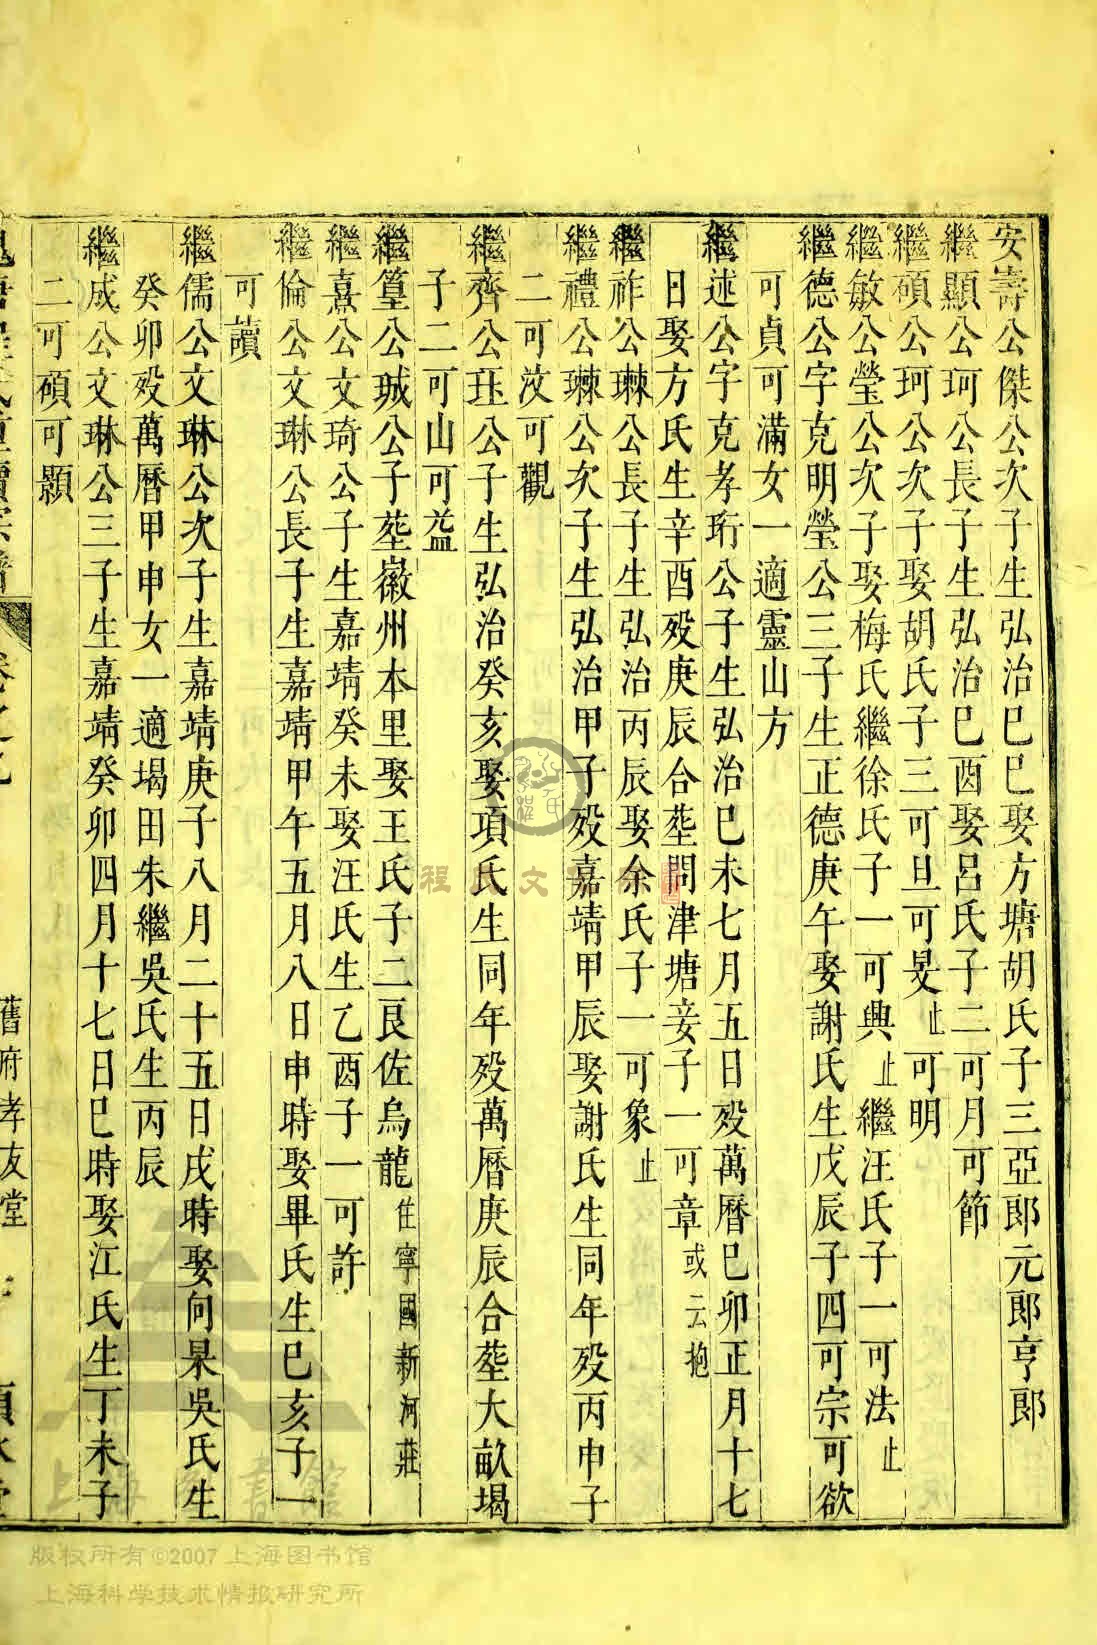 安壽公傑公次子生弘治巳巳娶方塘胡氏子三亞郎元郎亨郎
繼顯公珂公長子生弘治巳酉娶呂氏子二可月可節
繼碩公珂公次子娶胡氏子三可旦可旻止可明
繼敏公瑩公次子娶梅氏繼徐氏子一可興止繼汪氏子一可法止
繼德公字克明瑩公三子生正德庚午娶謝氏生戊辰子四可宗可欲
可貞可滿女一適靈山方
繼述公字克孝珩公子生弘治巳未七月五日歿萬曆巳卯正月十七
日娶方氏生辛酉歿庚辰合塟問津塘妾子一可章或云抱
繼祚公琳公長子生弘治丙辰娶余氏子一可象止
繼禮公琳公次子生弘治甲子歿嘉靖甲辰娶謝氏生同年歿丙申子
二可汶可觀
繼齊公玨公子生弘治癸亥娶項氏生同年歿萬曆庚辰合塟大畝堨
子二可山可益
繼篁公珹公子塟徽州本里娶王氏子二艮佐烏龍住寧國新河莊
繼熹公文琦公子生嘉靖癸未娶汪氏生乙酉子一可許
繼倫公文琳公長子生嘉靖甲午五月八日申時娶畢氏生巳亥子一
可讀
繼儒公文琳公次子生嘉靖庚子八月二十五日戌時娶向杲吳氏生
癸卯歿萬曆甲申女一適堨田朱繼吳氏生丙辰
繼成公文琳公三子生嘉靖癸卯四月十七日巳時娶江氏生丁未子
二可碩可顯
舊府孝友堂
上海圖書館
版权所有©2007上海图书馆
上海科学技术情报研究所